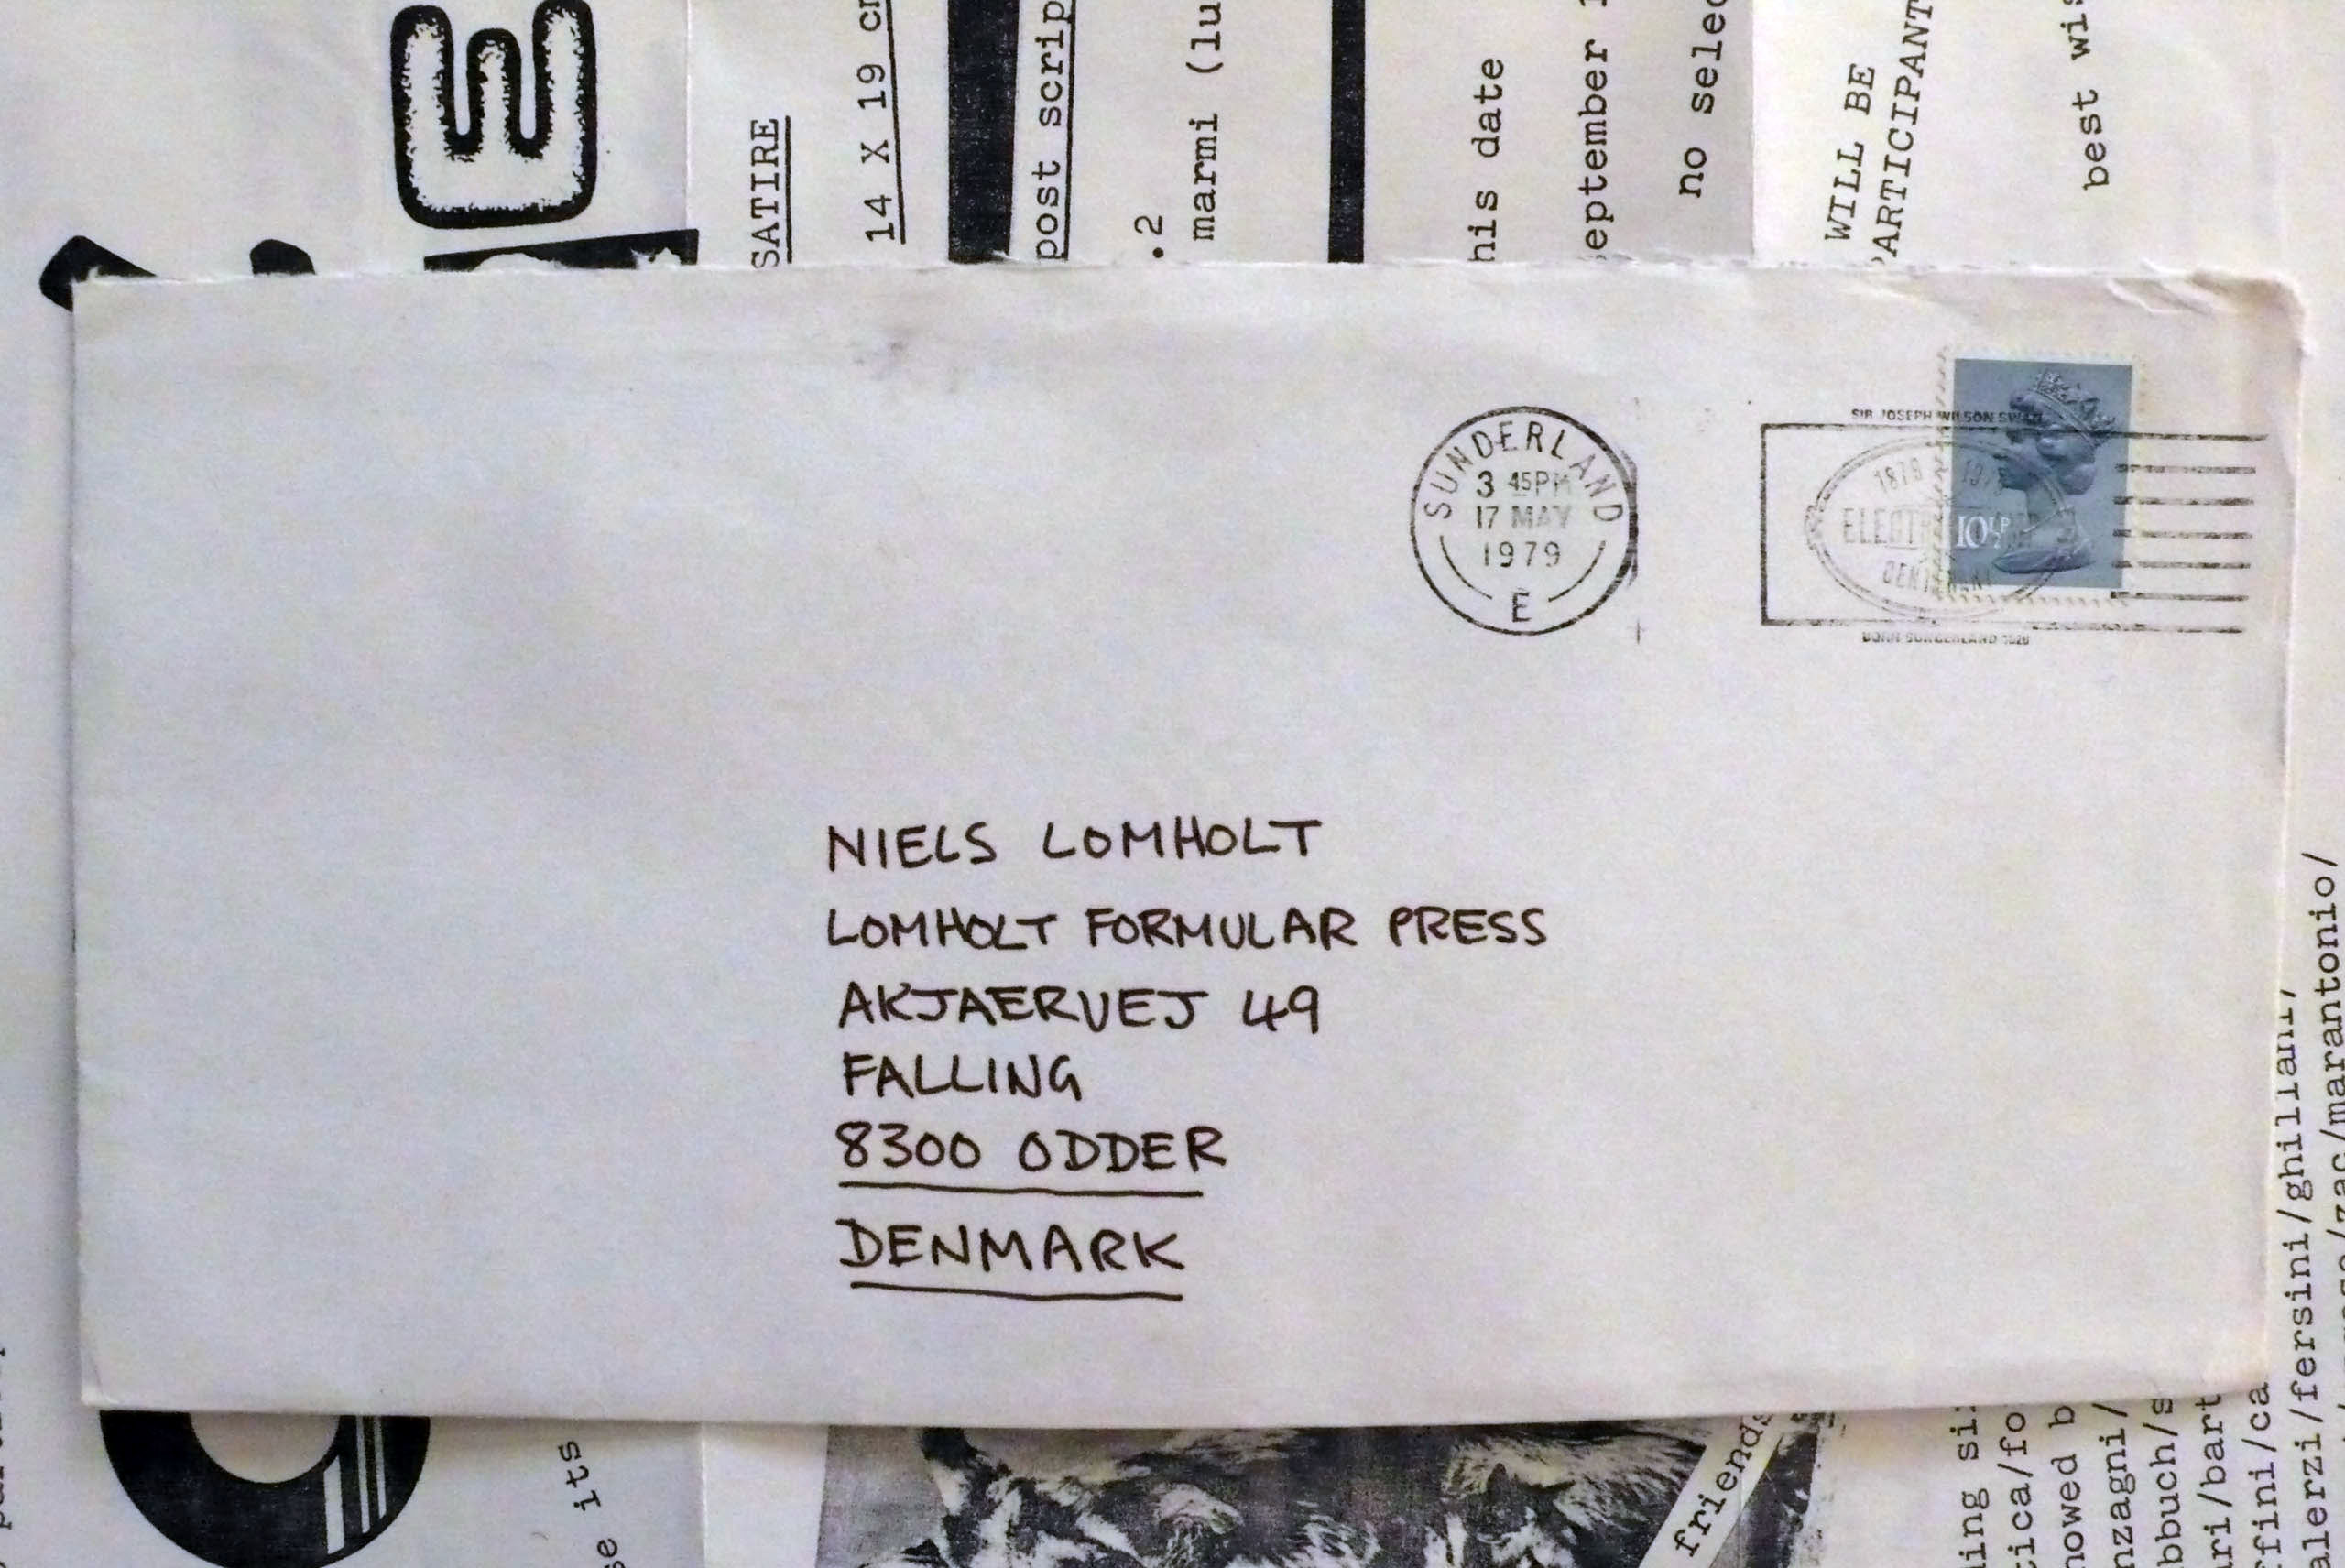 E
SATIRE
14 X 19
post scrip
.2
marmi (lu
his date
eptember
no selec
WILL BE
PARTICIPANT
best wi
SUNDERLAND
3 45PM
17 MAY
1979
E
SIR JOSEPH WILSON SWAN
1878 1978
10½P
BORN SUNDERLAND 1828
NIELS LOMHOLT
LOMHOLT FORMULAR PRESS
AKJAERVEJ 49
FALLING
8300 ODDER
DENMARK
e its
friends
ing si
tica/fo
howed b
nzagni/
bbuch/s
ri/bart
fini/ca
alerzi/fersini/ghillani/
/zac/marantonio/